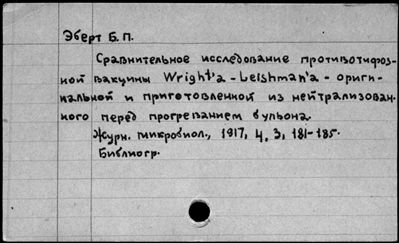 Эберт Б. П.
Сравнительное исследование противотифоз-
ной вакцины Wright'a - Leishman'a - ориги-
нальной и приготовленной из нейтрализован-
ного перед прогреванием бульона.
Журн. микробиол., 1917, 4, 3, 181-185.
Библиогр.